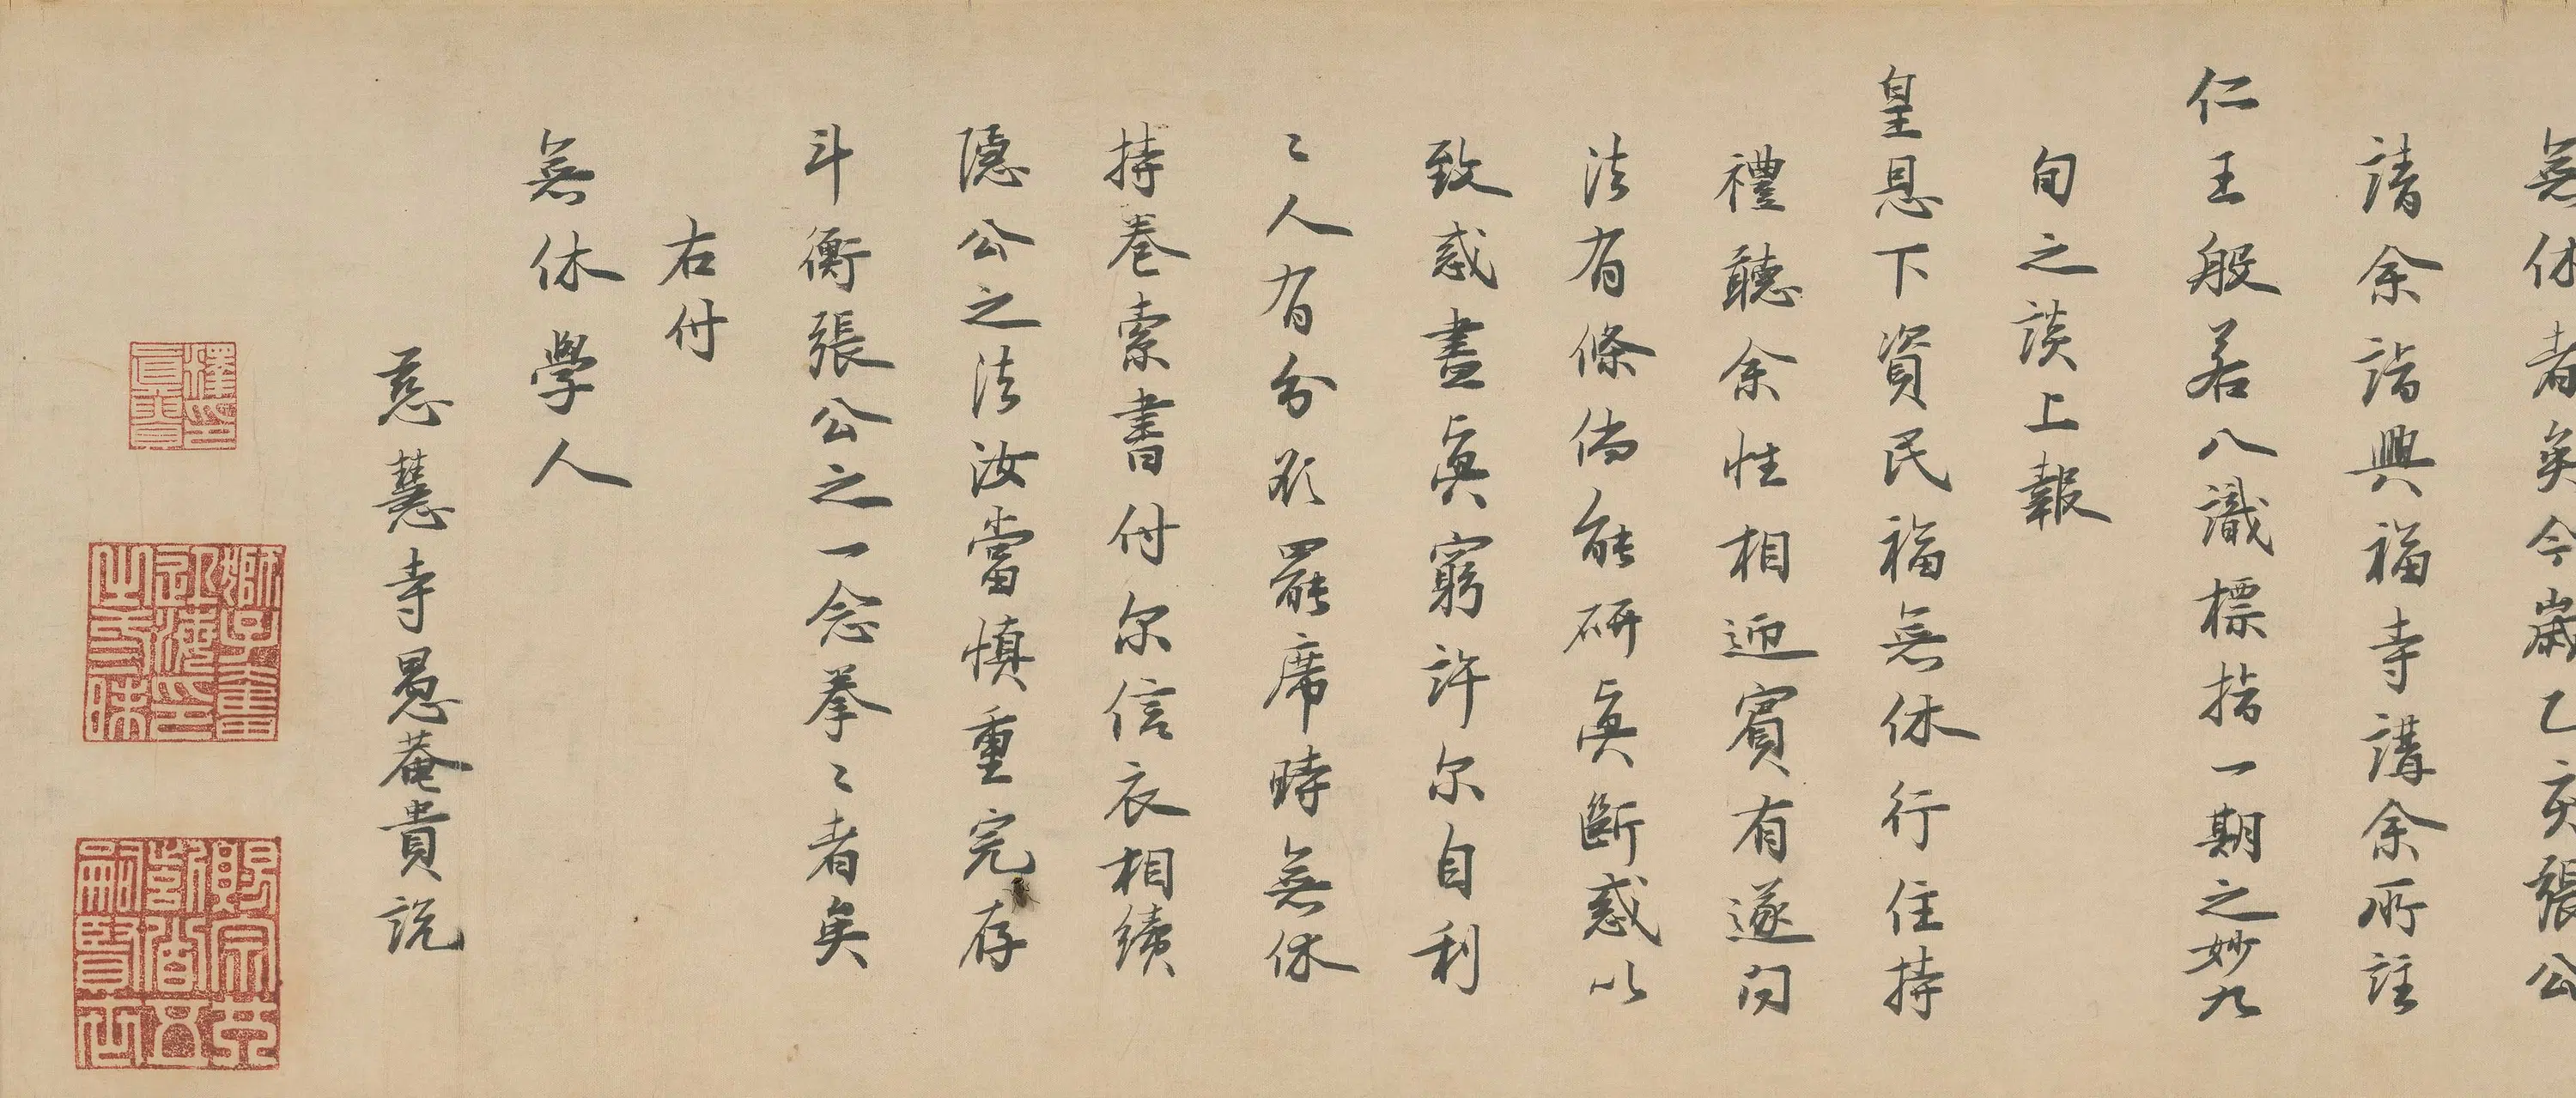 無休者矣今歲乙亥張公
請余詣興福寺講余所註
仁王般若八識標指一期之妙九
旬之談上報
皇恩下資民福無休行住持
禮聽余性相迎賓有遂问
法有條倘能研真斷惑以
致惑盡真窮許尔自利
〻人有分於罷席時無休
持卷索書付尔信衣相續
隱公之法汝當慎重完存
斗衡張公之一念拳〻者矣
右付
無休學人
慈慧寺愚菴貴説